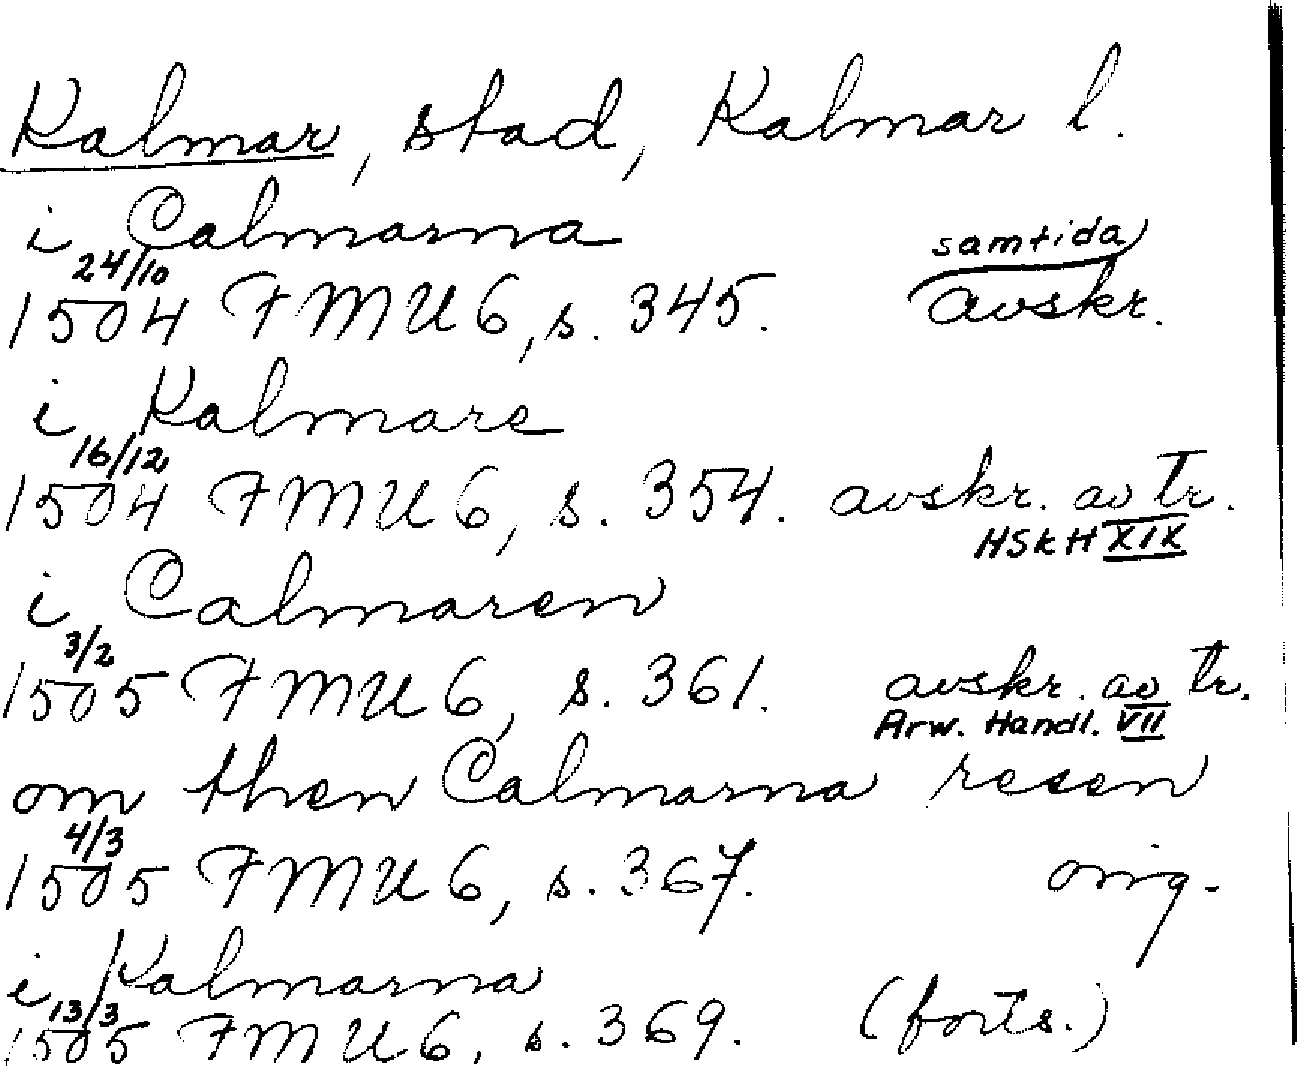 Kalmar, stad, Kalmar l.
i Calmarna
samtida
24/10
1504 FMU 6, s. 345. avskr.
i Kalmare
16/12
1504 FMU 6, s. 354. avskr. av tr.
HSkH XIX
i Calmaren
3/2
1505 FMU 6, s. 361. avskr. av tr.
Arw. Handl. VII
om then Calmarna resen
4/3
1505 FMU 6, s. 367. orig.
i Kalmarna
13/3
1505 FMU 6, s. 369. (forts.)